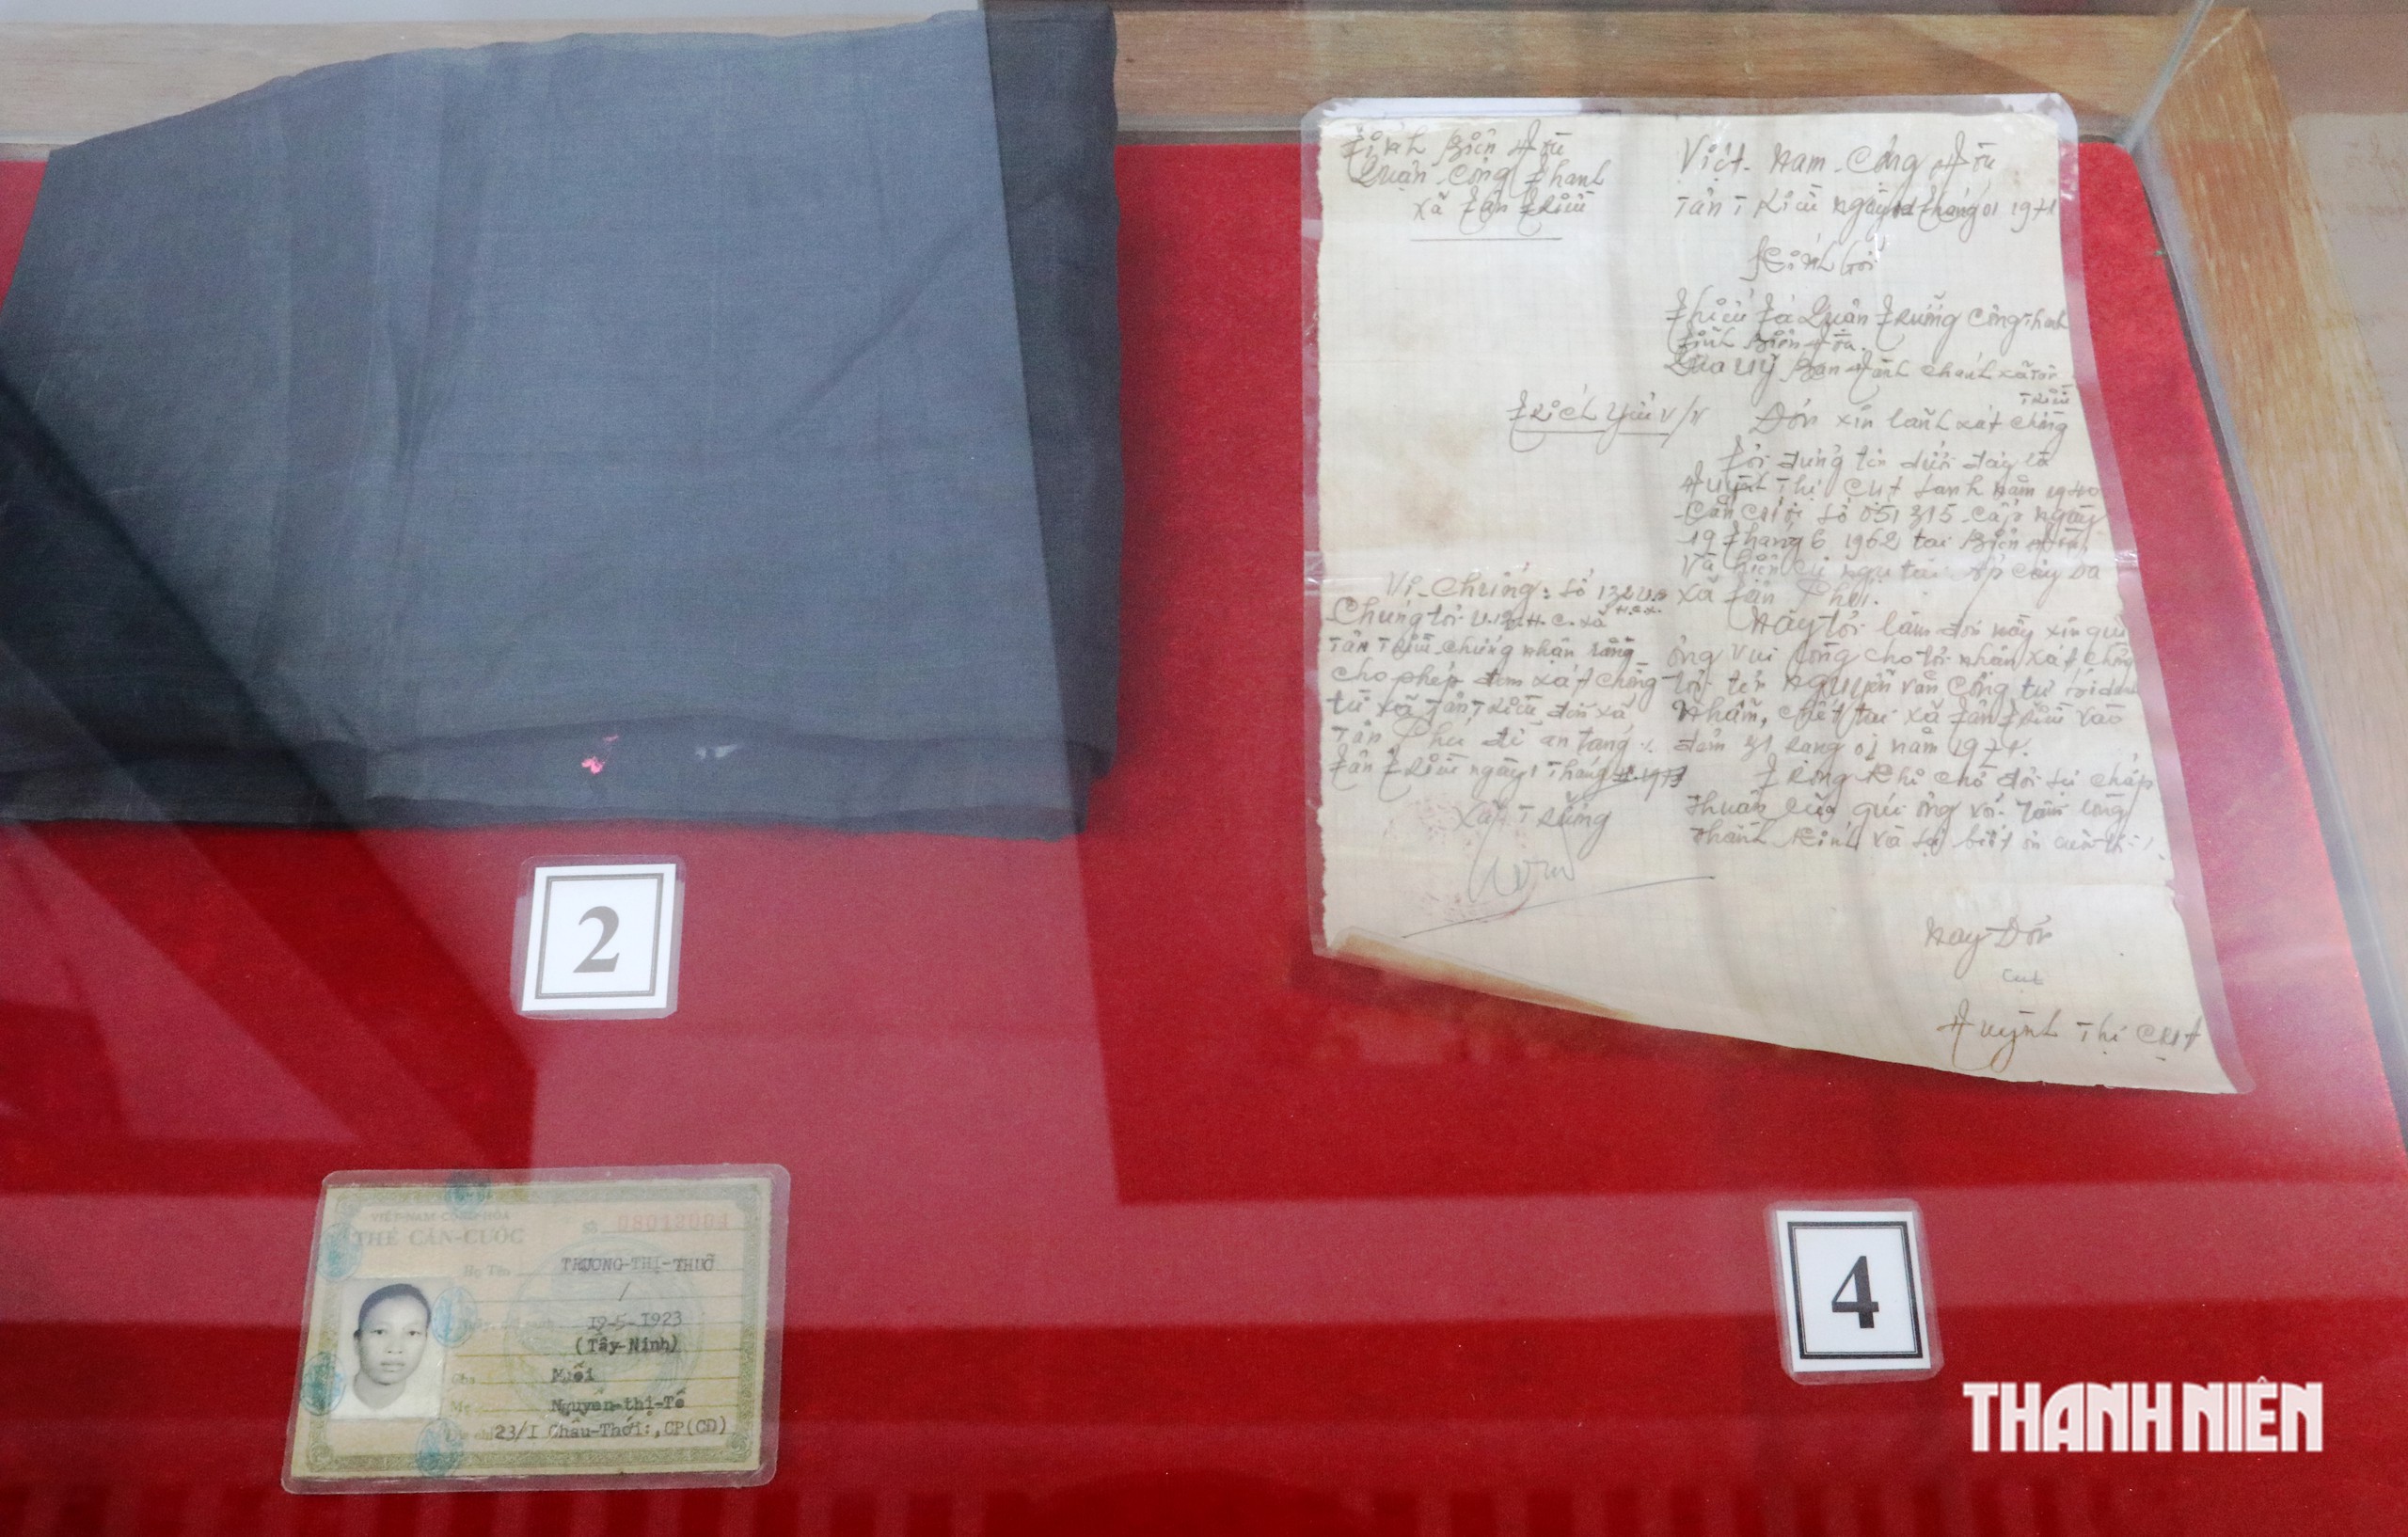 Tỉnh Biên Hòa
Quận Công Thanh
xã Tân Triều
Việt. Nam. Cộng Hòa
Tân Triều ngày tháng 01 1971
Kính Gởi
Thiếu Tá Quận Trưởng Công Thanh
Tỉnh Biên Hòa.
Qua Uỷ Ban Hành chánh xã
Triều
Trích yếu V/v Đơn xin lãnh xát chồng
Tôi đứng tên dưới đây là
Huỳnh Thị Cut sanh năm 1940
Căn cước số 051315 cấp ngày
19 tháng 6 1962 tại Biên Hòa
Và hiện cư ngụ tại ấp cây Da
xã Tân Phú.
Nay tôi làm đơn nầy xin quí
ông vui lòng cho tôi nhận xát chồng
tôi tên Nguyễn văn Công tự
Nhâm, chết tại xã Tân Triều vào
đêm 31 rạng 01 năm 1971.
Trong khi chờ đợi sự chấp
thuận của quí ông với tấm lòng
thành kính và sự biết ơn
Nay Đơn
Cut
Huỳnh Thị Cut
Vi-Chứng: số
Chúng tôi U.B.H.C. xã
Tân Triều chứng nhận rằng
cho phép đem xát chồng
từ xã Tân Triều đến xã
Tân Phú để an táng
Tân Triều ngày 1 tháng
Xã Trưởng
2
VIỆT-NAM CỘNG-HÒA
THẺ CĂN-CƯỚC
Số 08012004
Họ Tên TRƯƠNG-THỊ-THUỞ
/
19-5-1923
(Tây-Ninh)
Cha Muối
Mẹ Nguyễn-thị-Tế
Địa chỉ 23/I Châu-Thới:,CP(CĐ)
4
THANH NIÊN